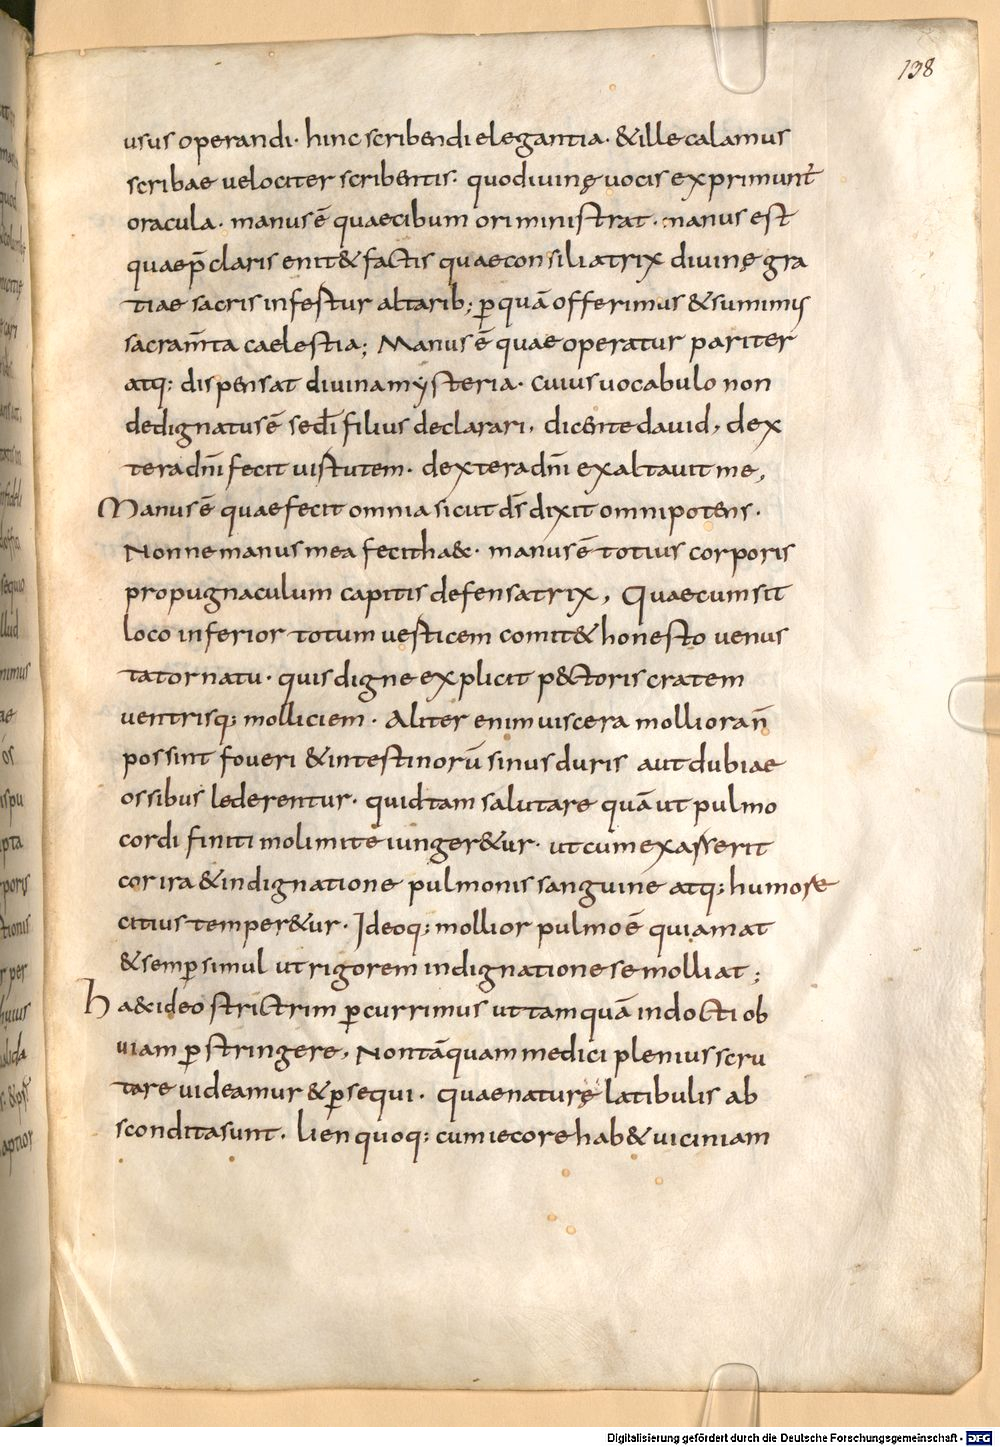 138
usus operandi· hinc scribendi elegantia· & ille calamus
scribae uelociter scribentis· quo diuinę uocis exprimunt̅
oracula· manus ē quae cibum ori ministrat· manus est
quae p̄claris enit& factis quae consiliatrix diuinę gra
tiae sacris infestur altarib; ꝑ quā offerimus & sumimus
sacram̅ta caelestia; Manus ē quae operatur pariter
atq: dispensat diuina mẏsteria· cuius uocabulo non
dedignatus ē se dī filius declarari, dicente dauid, dex
tera dn̄i fecit uistutem· dextera dn̄i exaltauit me,
Manus ē quae fecit omnia sicut d̄s dixit omnipotens·
Nonne manus mea fecit ha&c· manus ē totius corporis
propugnaculum capitis defensatrix, Quae cum sit
loco inferior totum uesticem comit & honesto uenus
tat ornatu· quis digne explicit p&toris cratem
uentrisq; molliciem· Aliter enim uiscera molliora n̄
possint foueri & intestinorū sinus duris aut dubiae
ossibus lederentur· quid tam salutare quā ut pulmo
cordi finiti molimite iunger&ur· ut cum exasserit
cor ira & indignatione pulmonis sanguine atq; humore
citius temper&ur· Ideoq; mollior pulmo ē quia mat
& semꝑ simul ut rigorem indignationes emolliat;
ha&c ideo strictrim ꝑcurrimus ut tamquā indocti ob
uiam ꝑstringere, Non tāquam medici plenius scru
tare uideamur & ꝑsequi· quae naturę latibulis ab
scondita sunt· lien quoq; cum iecore hab& uiciniam
Digitalisierung gefördert durch die Deutsche Forschungsgemeinschaft - DFG